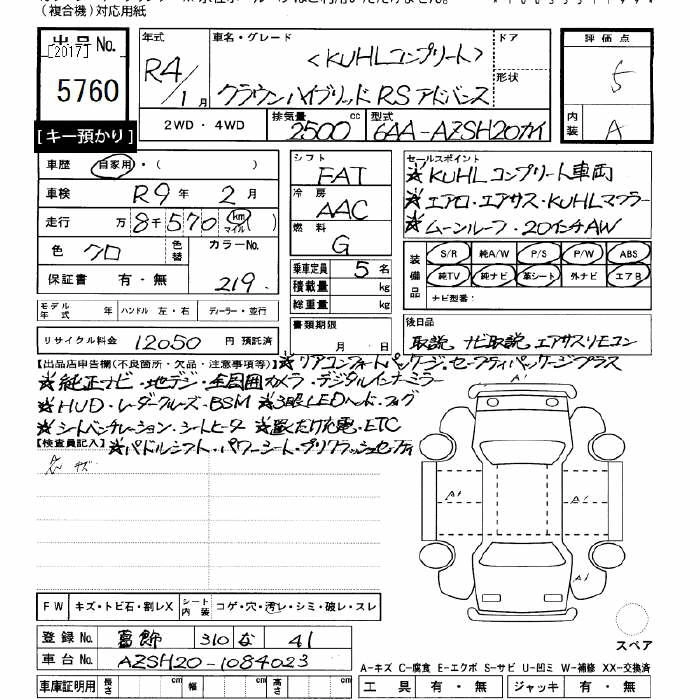 (複合機)対応用紙
出品No.
[2017]
5760
[キー預かり]
年式 車名・グレード 〈KUHLコンプリート〉 ドア
R4/1月 クラウンハイブリッド RS アドバンス 形状
2WD・4WD 排気量 2500 cc 型式 6AA-AZSH20カイ
評価点
5
内装 A
車歴 自家用・( )
車検 R9年 2月
走行 万 8千570 km マイル ( )
色 クロ 色替 カラーNo.
保証書 有・無 219
モデル年式 年 ハンドル 左・右 ディーラー・並行
リサイクル料金 12050 円 預託済
シフト FAT
冷房 AAC
燃料 G
乗車定員 5名
積載量 kg
総重量 kg
書類期限
月 日
セールスポイント
☆KUHL コンプリート車両
☆エアロ・エアサス・KUHLマフラー
☆ムーンルーフ・20インチAW
装備品 S/R 純A/W P/S P/W ABS
純TV 純ナビ 革シート 外ナビ エアB
ナビ型番:
後日品
取説、ナビ取説、エアサスリモコン
【出品店申告欄(不良箇所・欠品・注意事項等)】☆リアコンフォートパッケージ・セーフティパッケージプラス
☆純正ナビ・地デジ・全周囲カメラ・デジタルインナーミラー
☆HUD・レーダークルーズ・BSM ☆3眼LEDヘッド・フォグ
☆シートベンチレーション・シートヒーター ☆置くだけ充電・ETC
【検査員記入】☆パドルシフト・パワーシート・プリクラッシュセーフティ
キズ
A1
A1
A1
A1
FW キズ・トビ石・割レX シート内装 コゲ・穴・汚レ・シミ・破レ・スレ
スペア
登録No. 葛飾 310 な 41
車台No. AZSH20-1084023
A-キズ C-腐食 E-エクボ S-サビ U-凹ミ W-補修 XX-交換済
車庫証明用 長さ cm 幅 cm 高さ cm 工具 有・無 ジャッキ 有・無